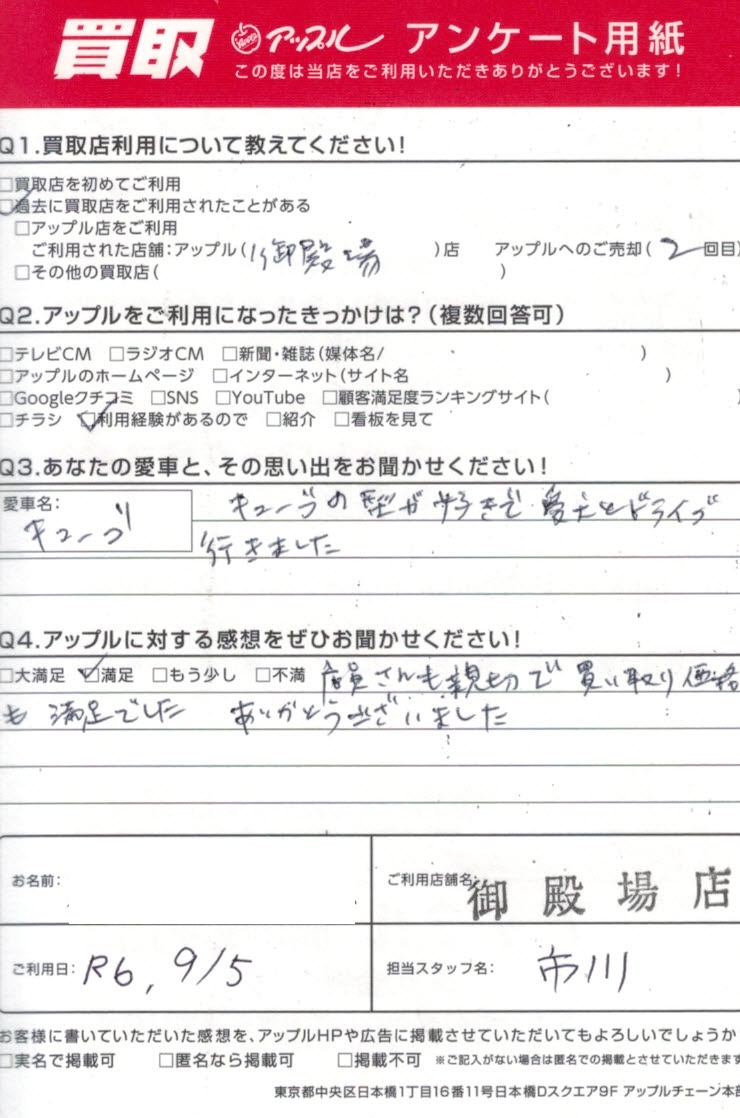 買取 アップル アンケート用紙
この度は当店をご利用いただきありがとうございます!
Q1.買取店利用について教えてください!
□買取店を初めてご利用
☑過去に買取店をご利用されたことがある
□アップル店をご利用
ご利用された店舗:アップル(御殿場)店 アップルへのご売却(2回目)
□その他の買取店( )
Q2.アップルをご利用になったきっかけは?(複数回答可)
□テレビCM □ラジオCM □新聞・雑誌(媒体名/ )
□アップルのホームページ □インターネット(サイト名 )
□Googleクチコミ □SNS □YouTube □顧客満足度ランキングサイト( )
□チラシ ☑利用経験があるので □紹介 □看板を見て
Q3.あなたの愛車と、その思い出をお聞かせください!
愛車名:
キューブ
キューブの型が好きで 愛犬とドライブ
行きました
Q4.アップルに対する感想をぜひお聞かせください!
□大満足 ☑満足 □もう少し □不満 店員さんも親切で 買い取り価格
も 満足でした ありがとうございました
お名前:
ご利用店舗名: 御殿場店
ご利用日: R6, 9/5
担当スタッフ名: 市川
お客様に書いていただいた感想を、アップルHPや広告に掲載させていただいてもよろしいでしょうか
□実名で掲載可 □匿名なら掲載可 □掲載不可 ※ご記入がない場合は匿名での掲載とさせていただきます
東京都中央区日本橋1丁目16番11号日本橋Dスクエア9F アップルチェーン本部